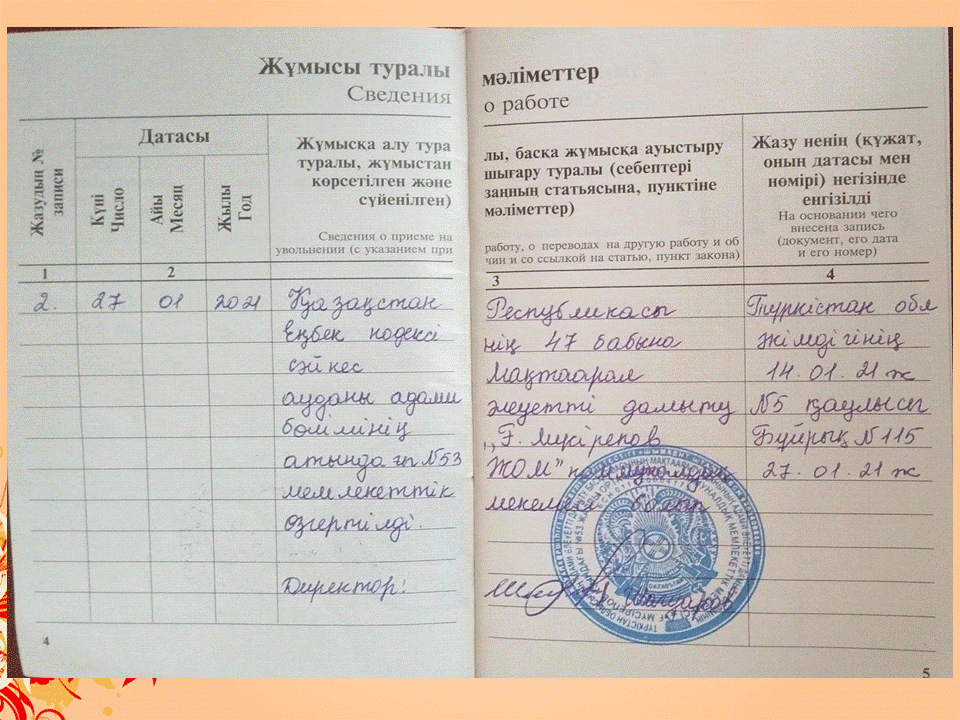 Жұмысы туралы мәліметтер
Сведения о работе
Жазудың №
записи
Датасы
Күні
Число
Айы
Месяц
Жылы
Год
Жұмысқа алу тура
туралы, жұмыстан
көрсетілген және
сүйенілген)
Сведения о приеме на
увольнении (с указанием при
лы, басқа жұмысқа ауыстыру
шығару туралы (себептері
заңның статьясына, пунктіне
мәліметтер)
работу, о переводах на другую работу и об
чин и со ссылкой на статью, пункт закона)
Жазу ненің (құжат,
оның датасы мен
нөмірі) негізінде
енгізілді
На основании чего
внесена запись
(документ, его дата
и его номер)
1 2 3 4
2. 27 01 2021 Қазақстан Республикасы Түркістан обл
Еңбек кодексі нің 47 бабына әкімдігінің
сәйкес Мақтаарал 14.01.21 ж
ауданы адами әлеуетті дамыту №5 қаулысы
бөлімінің „Ғ. Мүсірепов Бұйрық N 115
атындағы №53 ЖОМ" коммуналдық 27.01.21 ж
мемлекеттік мекемесі болып
өзгертілді.
Директор:
4
5